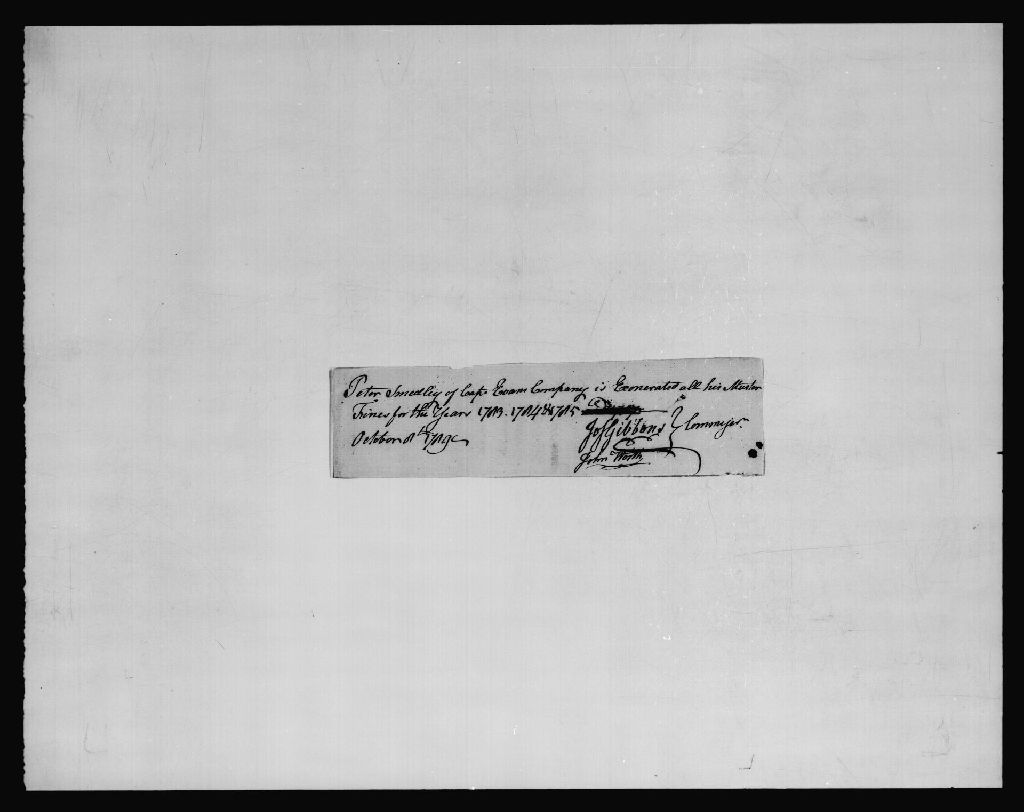 Peter Smedley of Capt Evans Company is Exonerated all his Muster
Fines for the Years 1783. 1784 & 1785
October 8th 1789
Jos Gibbons
John Worth
Commissrs